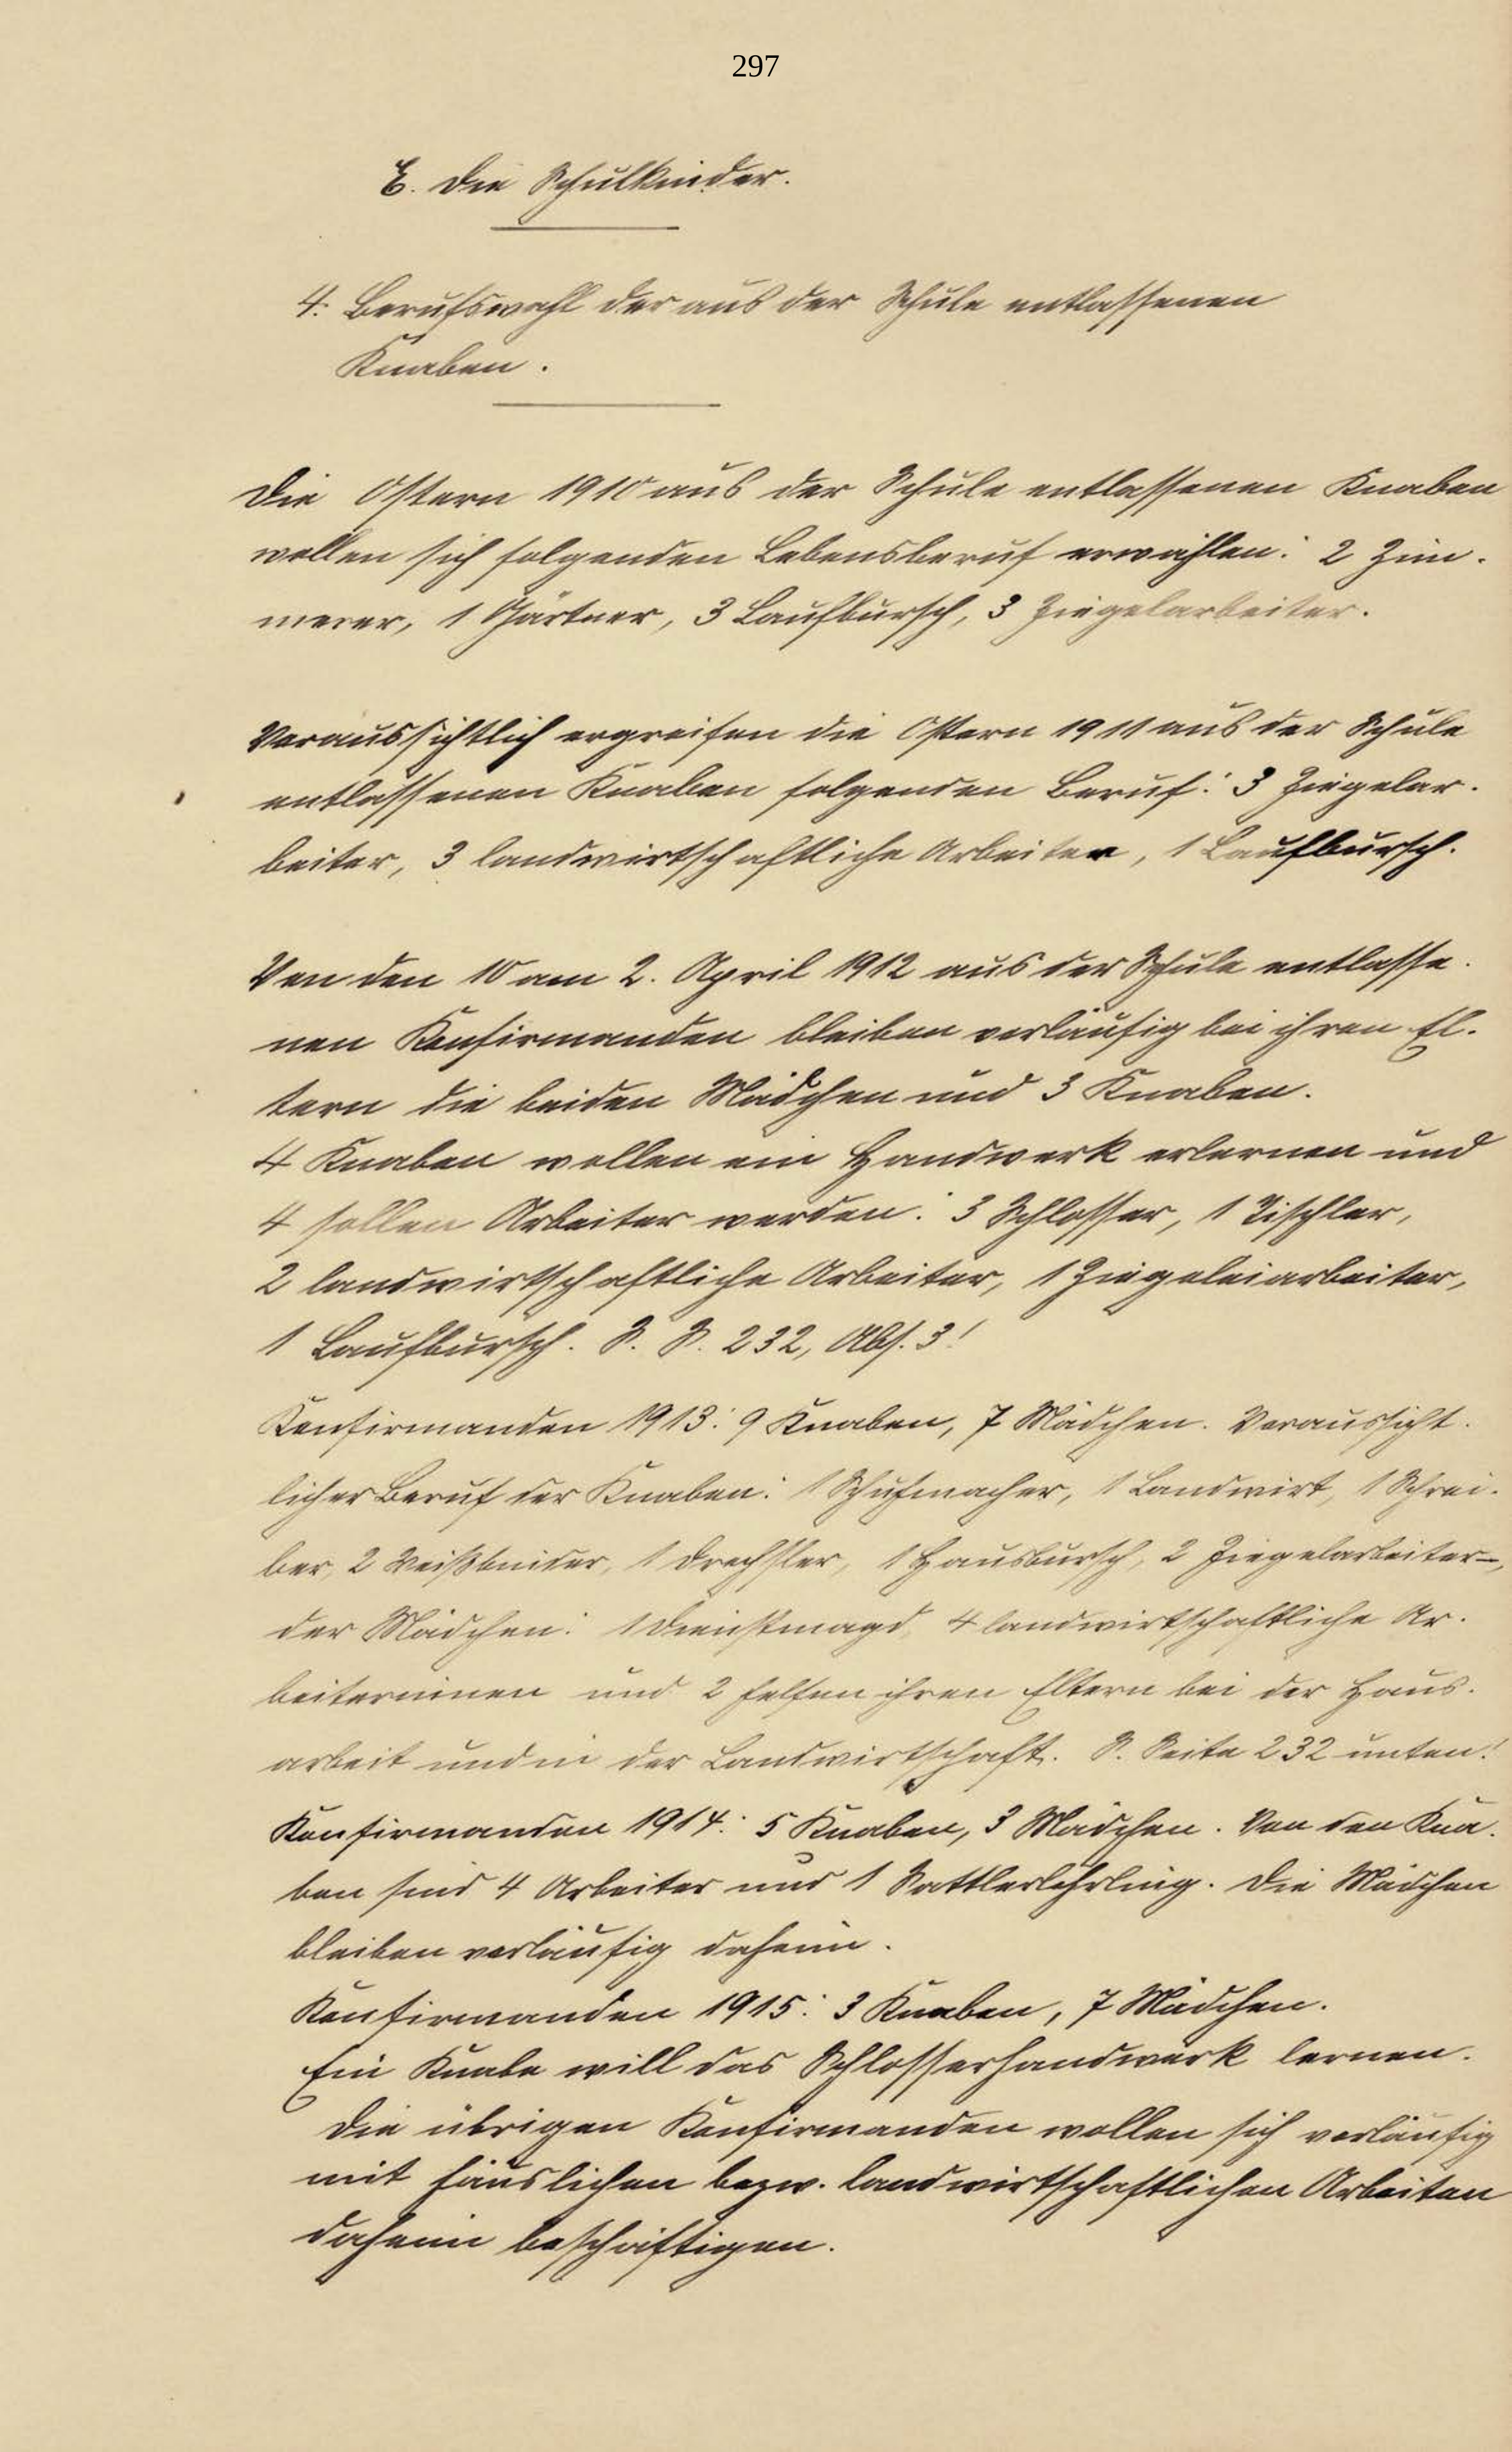 297
E. Die Schulkinder.
4. Berufswahl der aus der Schule entlassenen
Knaben.
Die Ostern 1910 aus der Schule entlassenen Knaben
wollen sich folgenden Lebensberuf erwählen: 2 Zim-
merer, 1 Gärtner, 3 Laufbursch, 3 Ziegelarbeiter.
Voraussichtlich ergreifen die Ostern 1911 aus der Schule
entlassenen Knaben folgenden Beruf: 3 Ziegelar-
beiter, 3 landwirtschaftliche Arbeiter, 1 Laufbursch.
Von den 10 am 2. April 1912 aus der Schule entlasse-
nen Konfirmanden bleiben vorläufig bei ihren El-
tern die beiden Mädchen und 3 Knaben.
4 Knaben wollen ein Handwerk erlernen und
4 sollen Arbeiter werden: 3 Schlosser, 1 Tischler,
2 landwirtschaftliche Arbeiter, 1 Ziegeleiarbeiter,
1 Laufbursch. S. S. 232, Abs. 3!
Konfirmanden 1913: 9 Knaben, 7 Mädchen. Voraussicht-
licher Beruf der Knaben: 1 Schuhmacher, 1 Landwirt, 1 Schrei-
ber, 2 Weißbinder, 1 Drechsler, 1 Hausbursch, 2 Ziegelarbeiter –,
der Mädchen: 1 Dienstmagd, 4 landwirtschaftliche Ar-
beiterinnen und 2 helfen ihren Eltern bei der Haus-
arbeit und in der Landwirtschaft. S. Seite 232 unten!
Konfirmanden 1914: 5 Knaben, 3 Mädchen. Von den Kna-
ben sind 4 Arbeiter und 1 Sattlerlehrling. Die Mädchen
bleiben vorläufig daheim.
Konfirmanden 1915: 3 Knaben, 7 Mädchen.
Ein Knabe will das Schlosserhandwerk lernen.
Die übrigen Konfirmanden wollen sich vorläufig
mit häuslichen bezw. landwirtschaftlichen Arbeiten
daheim beschäftigen.